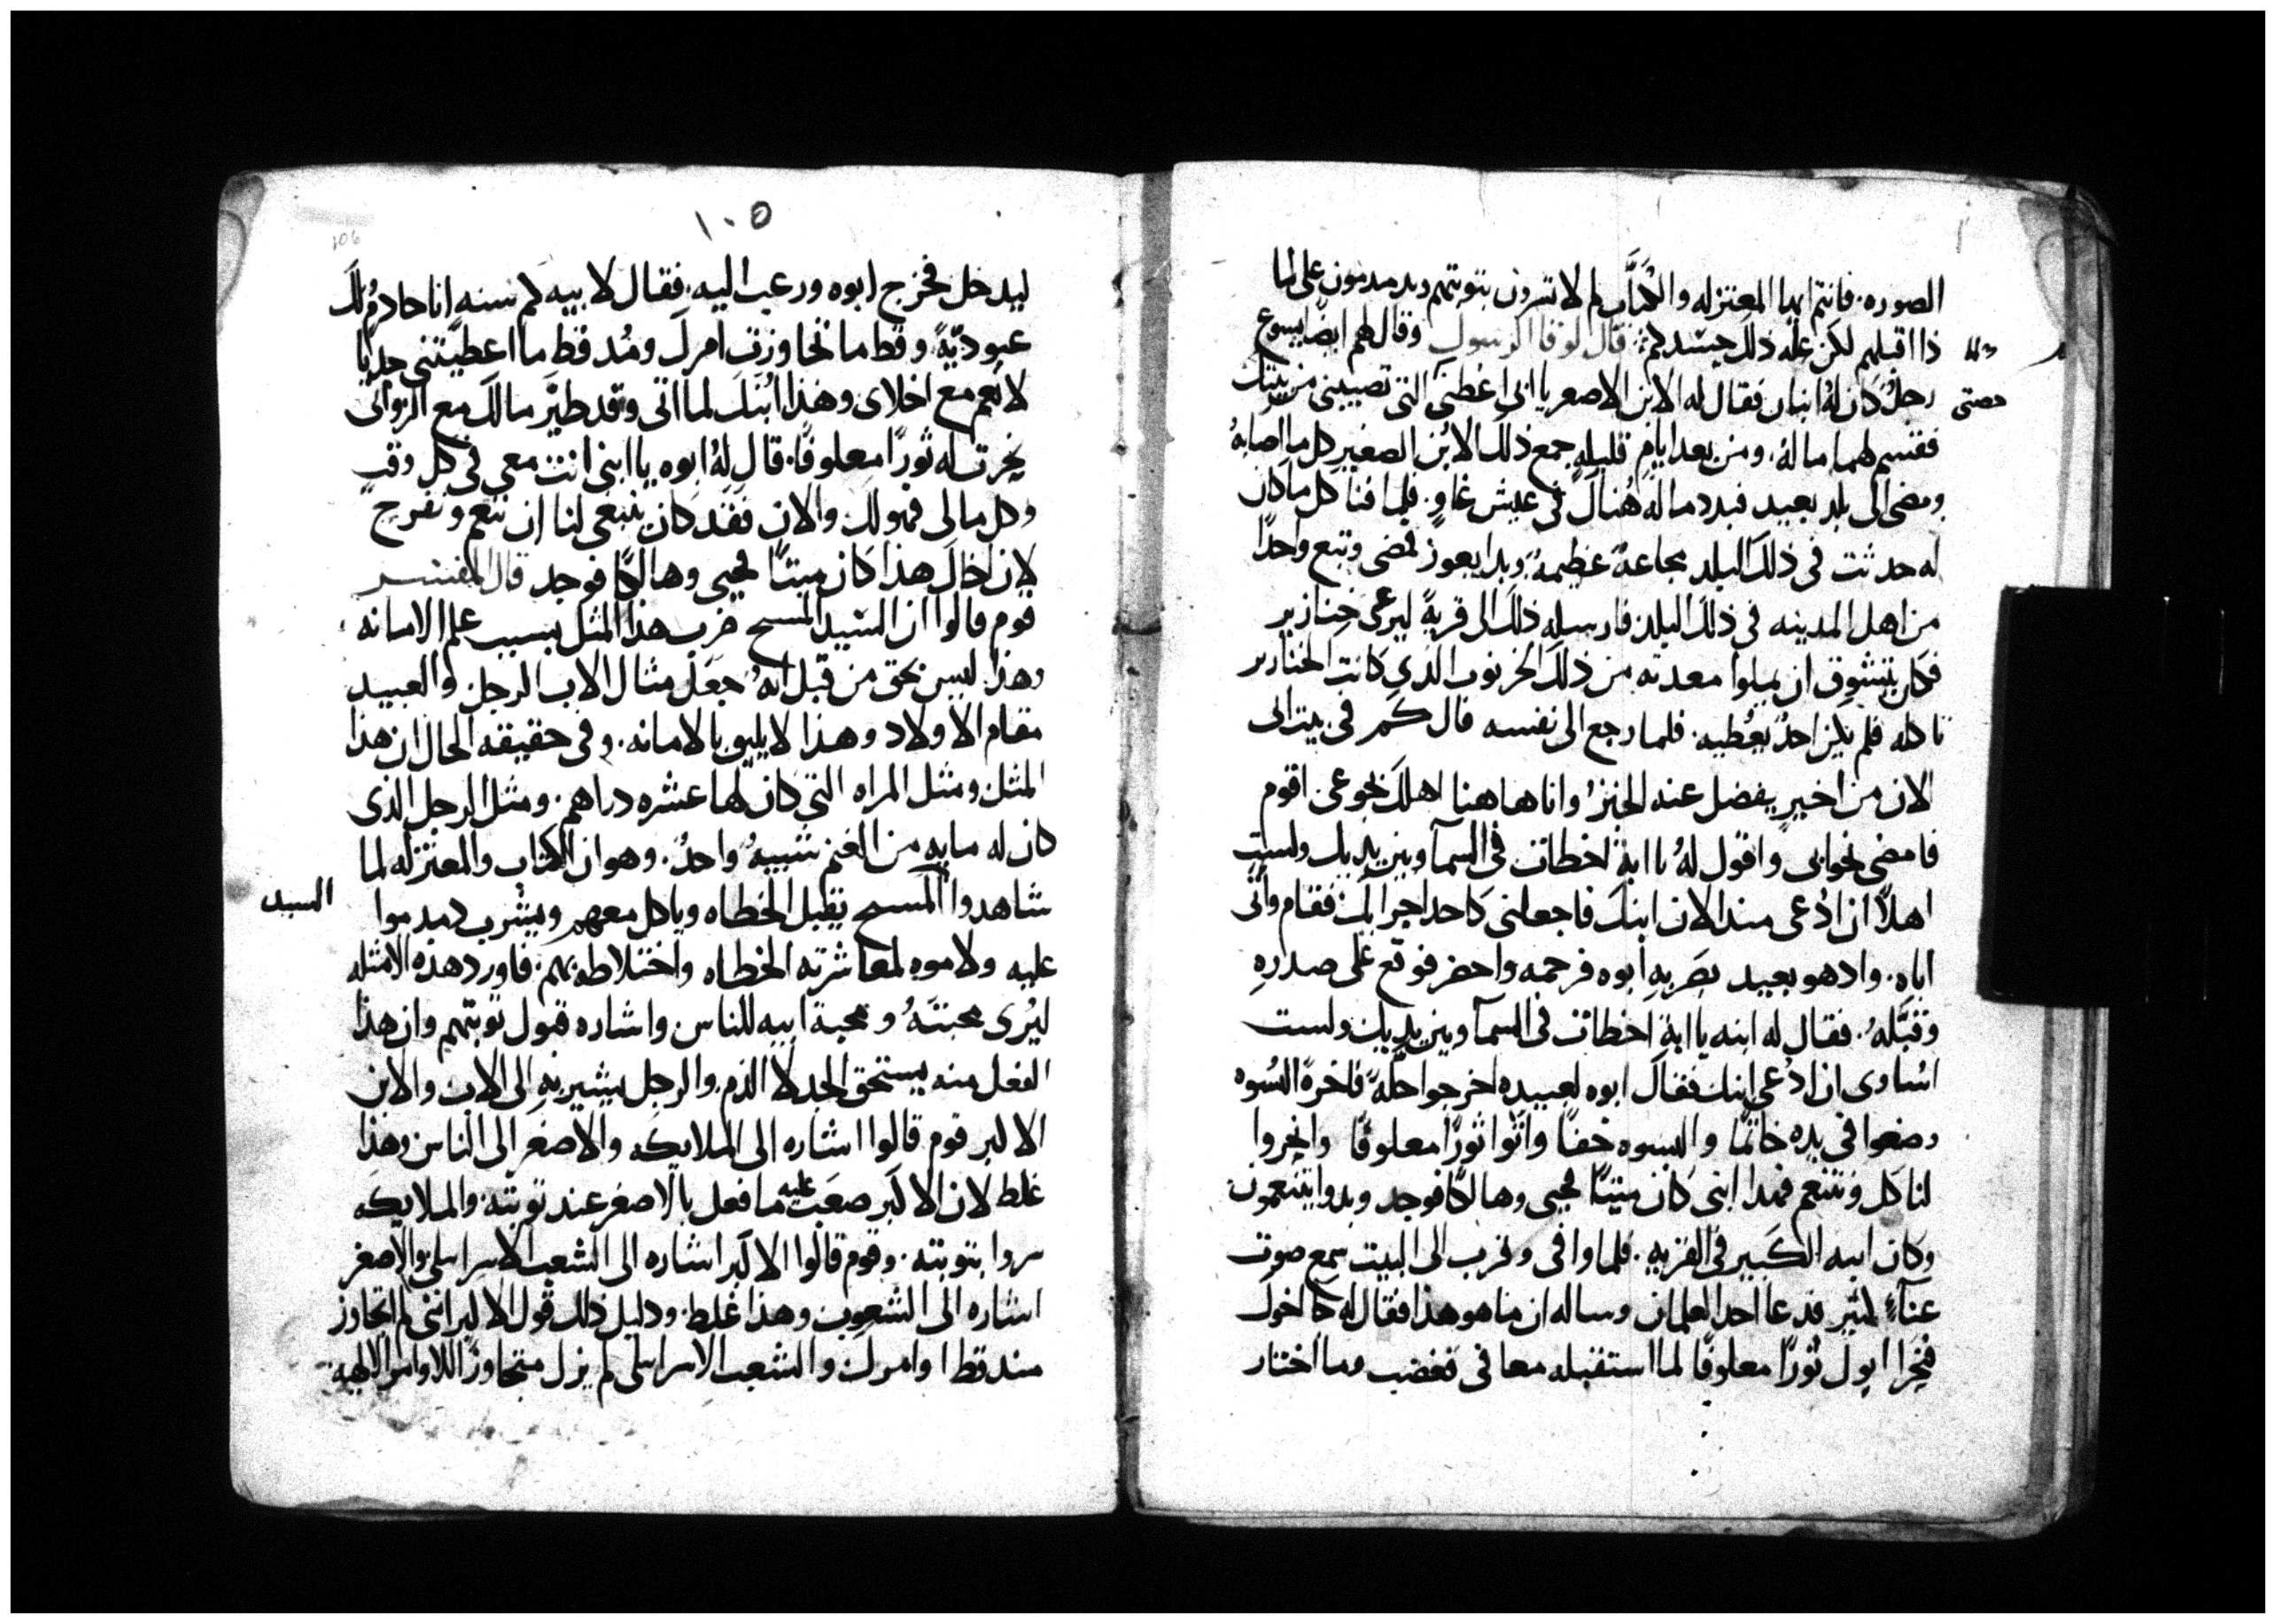 الصوره. فانتم ايها المعتزله والكتاب لم لا تسرون بتوبتهم وتدمدمون على لما
ذا اقبلهم لكن عله ذلك حسدكم قال لوقا الرسول وقال لهم ايضا يسوع
رجل كان له ابنان فقال له الابن الاصغر يا ابى اعطنى التى تصيبنى من بيتك
حصتى
فقسم لهما ماله. ومن بعد ايام قليله جمع ذلك الابن الصغير كل ما اصابه
ومضى الى بلد بعيد فبدد ماله هناك فى عيش غاو. فلما فنا كل ما كان
له حدثت فى ذلك البلد مجاعة عظيمة وبدا يعوز فمضى وتبع واحدا
من اهل المدينه فى ذلك البلد فارسله ذلك الى قرية ليرعى خنازير
فكان يتشوق ان يملوا معدته من ذلك الخرنوب الذى كانت الخنازير
تاكله فلم يكن احد يعطيه. فلما رجع الى نفسه قال كم فى بيت ابى
الان من اخير يفضل عنه الخبز وانا هاهنا اهلك بجوعى اقوم
فامضى نحو ابى واقول له يا ابة اخطات فى السمآ وبين يديك ولست
اهلا ان ادعى منذ الان ابنك فاجعلنى كاحد اجرايك فقام واتى
اباه. واذ هو بعيد بصر به ابوه فرحمه واحضر فوقع على صدره
وقبله. فقال له ابنه يا ابة اخطات فى السمآ وبين يديك ولست
اساوى ان ادعى ابنك فقال ابوه لعبيده اخرجوا حلة فاخرة البسوه
وضعوا فى يده خاتما والبسوه خفا واتوا ثورا معلوفا وانحروا
لناكل ونتنعم فهذا ابنى كان ميتا فحيى وهالكا فوجد وبدوا يتنعمون
وكان ابنه الكبير فى القريه. فلما وافى وقرب الى البيت سمع صوت
غنآء لثير فدعا احد الغلمان وساله ان ما هو هذا فقال له جا اخوك
فنحر ابوك ثورا معلوفا لما استقبله معافى فغضب وما اختار
١٠٥
106
ليدخل فخرج ابوه ورغب اليه. فقال لابيه لم سنه انا خادم لك
عبودية وقط ما تجاوزت امرك ومذ قط ما اعطيتنى جديا
لانعم مع اخلاى وهذا ابنك لما اتى وقد طير مالك مع الزوانى
نحرت له ثورا معلوفا. قال له ابوه يا ابنى انت معى فى كل وقت
وكل مالى فهو لك والان فقد كان ينبغى لنا ان نتنعم ونفرح
لان اخاك هذا كان ميتا فحيى وهالكا فوجد قال المفسر
قوم قالوا ان السيد المسيح ضرب هذا المثل بسبب علم الامانه
وهذا ليس بحق من قبل انه جعل مثال الاب الرجل والعبيد
مقام الاولاد وهذا لا يليق بالامانه. وفى حقيقه الحال ان هذا
المثل ومثل المراه التى كان لها عشره دراهم. ومثل الرجل الذى
كان له مايه من الغنم شبيه واحد. وهو ان الكتاب والمعتزله لما
شاهدوا المسيح يقبل الخطاه وياكل معهم ويشرب دمدموا
السيد
عليه ولاموه لمعاشرته الخطاه واختلاطه بهم. فاورد هذه الامثله
ليرى محبته ومحبة ابيه للناس واشاره قبول توبتهم وان هذا
الفعل منه يستحق الحمد لا الذم. والرجل يشير به الى الاب والابن
الاكبر قوم قالوا اشاره الى الملايكه والاصغر الى الناس وهذا
غلط لان الاكبر صعب عليه ما فعل بالاصغر عند توبته والملايكه
سروا بتوبته. وقوم قالوا الاكبر اشاره الى الشعب الاسرايلى والاصغر
اشاره الى الشعوب وهذا غلط. ودليل ذلك قول الاكبر اننى لم اتجاوز
منذ قط اوامرك والشعب الاسرايلى لم يزل متجاوزا للاوامر الالهيه